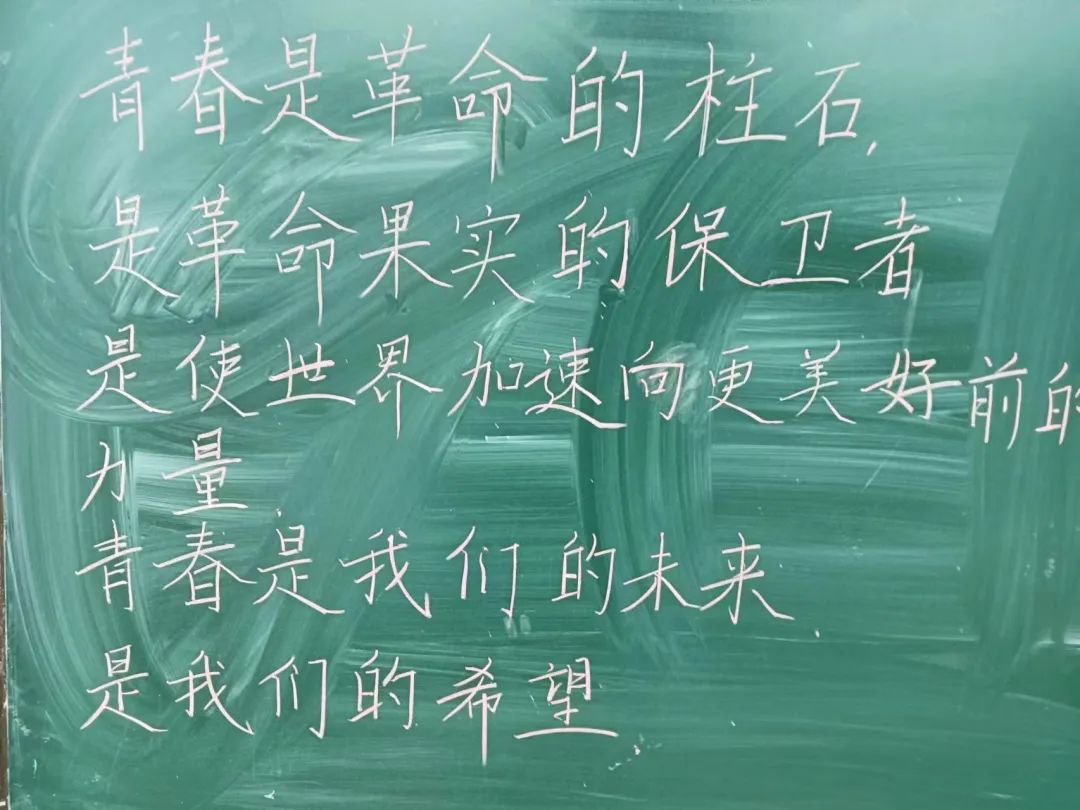 青春是革命的柱石,
是革命果实的保卫者
是使世界加速向更美好前的
力量
青春是我们的未来.
是我们的希望.